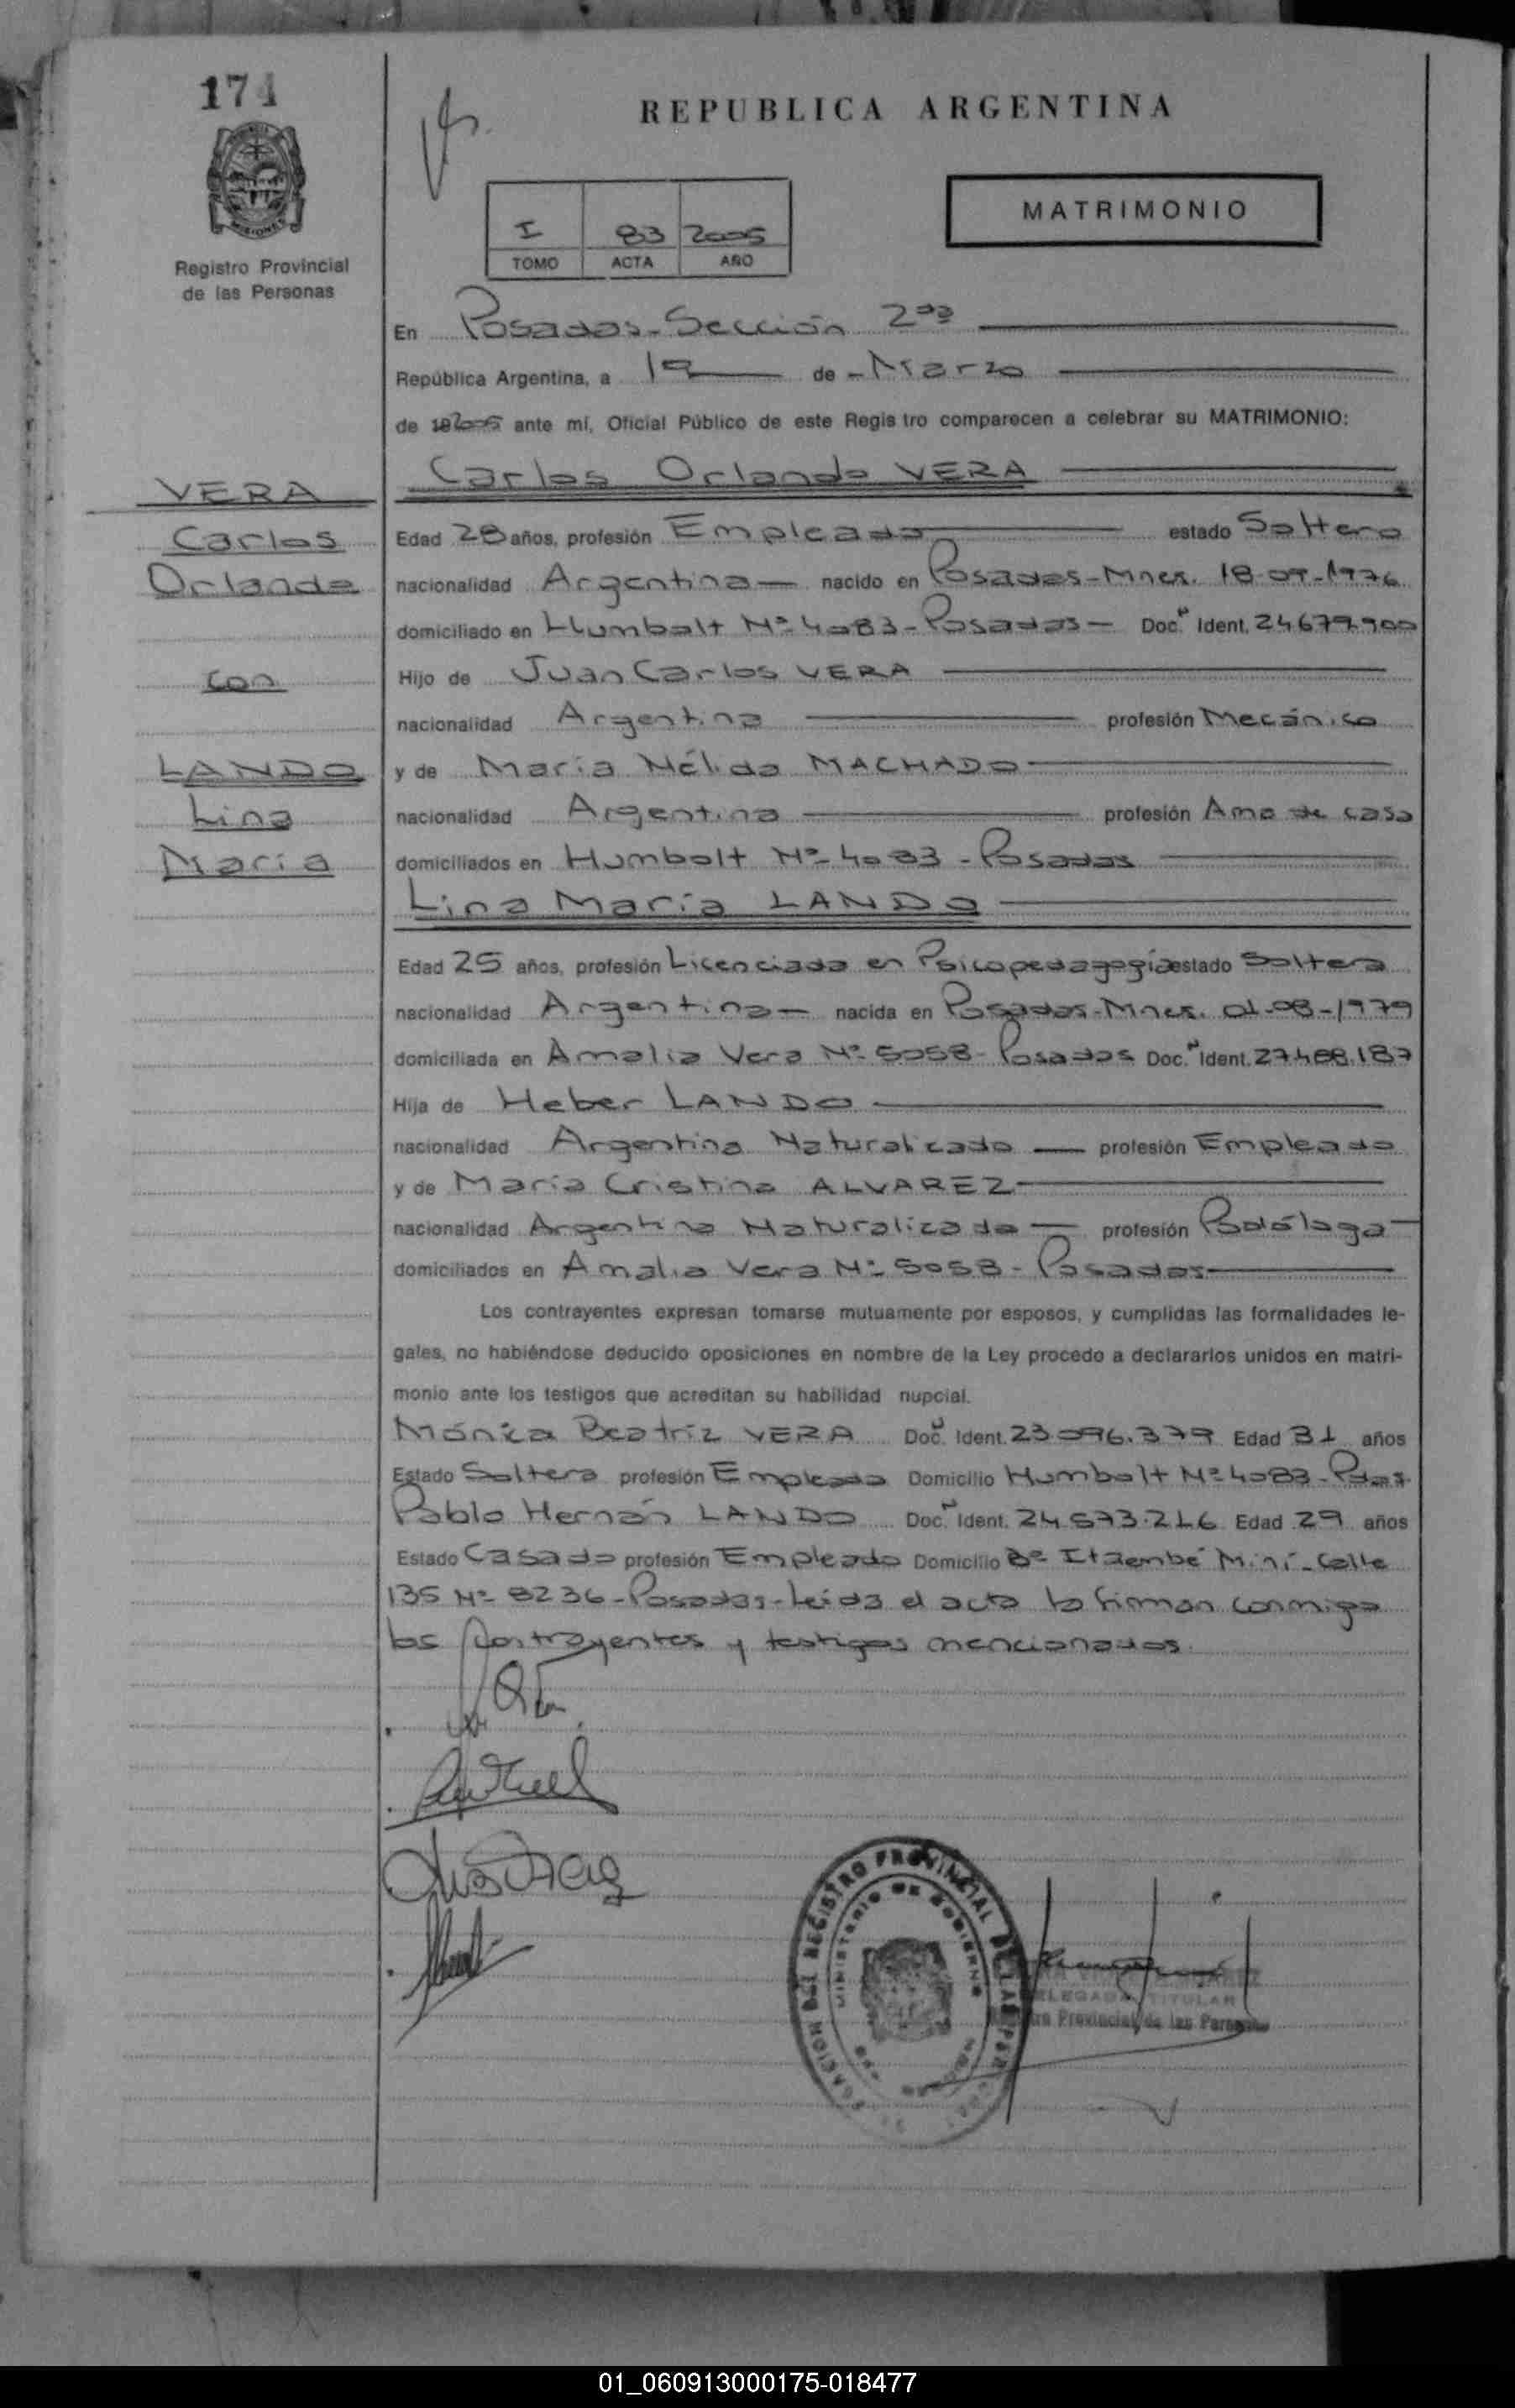 174
REPUBLICA ARGENTINA
MATRIMONIO
I 83 2005
TOMO ACTA AÑO
MISIONES
Registro Provincial
de las Personas
En Posadas-Sección 2da
República Argentina, a 19 de - Marzo
de 2005 ante mí, Oficial Público de este Registro comparecen a celebrar su MATRIMONIO:
Carlos Orlando VERA
VERA
Carlos
Orlando
con
LANDO
Lina
María
Edad 28 años, profesión Empleado estado Soltero
nacionalidad Argentina nacido en Posadas-Mnes. 18-09-1976
domiciliado en Humbolt Nº 4083-Posadas Doc. Ident. 24.679.900
Hijo de Juan Carlos VERA
nacionalidad Argentina profesión Mecánico
y de María Nélida MACHADO
nacionalidad Argentina profesión Ama de casa
domiciliados en Humbolt Nº 4083-Posadas
Lina María LANDO
Edad 25 años, profesión Licenciada en Psicopedagogía estado Soltera
nacionalidad Argentina nacida en Posadas-Mnes. 01-08-1979
domiciliada en Amalia Vera Nº 5058-Posadas Doc. Ident. 27.488.187
Hija de Heber LANDO
nacionalidad Argentina Naturalizado profesión Empleado
y de María Cristina ALVAREZ
nacionalidad Argentina Naturalizada profesión Podóloga
domiciliados en Amalia Vera Nº 5058-Posadas
Los contrayentes expresan tomarse mutuamente por esposos, y cumplidas las formalidades le-
gales, no habiéndose deducido oposiciones en nombre de la Ley procedo a declararlos unidos en matri-
monio ante los testigos que acreditan su habilidad nupcial.
Mónica Beatriz VERA Doc. Ident. 23.096.379 Edad 31 años
Estado Soltera profesión Empleada Domicilio Humbolt Nº 4083-Pdas.
Pablo Hernán LANDO Doc. Ident. 24.573.216 Edad 29 años
Estado Casado profesión Empleado Domicilio Bº Itaembé Miní-Calle
135 Nº 8236-Posadas-Leída el acta la firman conmigo
los contrayentes y testigos mencionados.
REGISTRO PROVINCIAL DE LAS PER
MINISTERIO DE GOBIERNO
DELEGADA TITULAR
Registro Provincial de las Personas
01_060913000175-018477